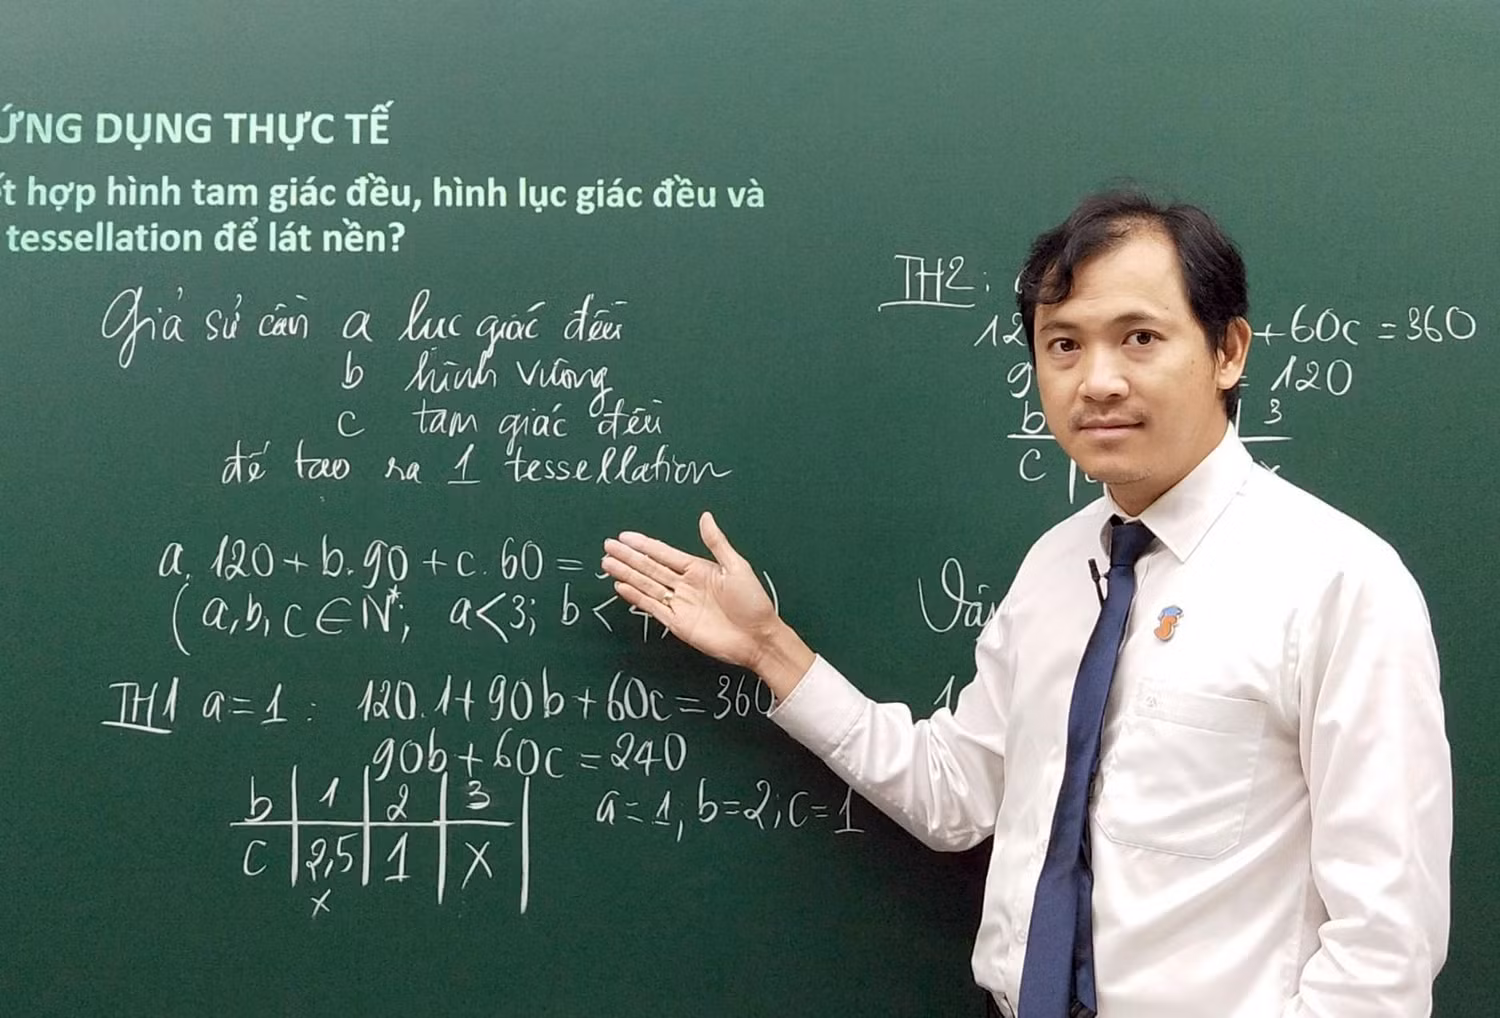 ỨNG DỤNG THỰC TẾ
hợp hình tam giác đều, hình lục giác đều và
tessellation để lát nền?
Giả sử cần a lục giác đều
b hình vuông
c tam giác đều
để tạo ra 1 tessellation
a. 120 + b. 90 + c. 60 =
(a, b, c ∈ N*; a < 3; b <
TH1 a = 1 : 120. 1 + 90b + 60c = 360
90b + 60c = 240
b | 1 | 2 | 3
c | 2,5 | 1 | x
x
a = 1, b = 2; c = 1
TH2 :
12 + 60c = 360
9 = 120
b 3
c